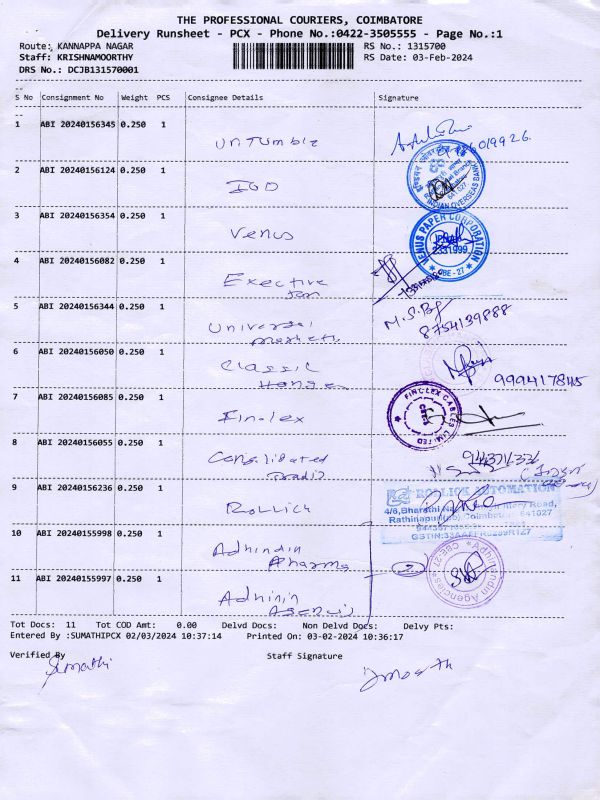 THE PROFESSIONAL COURIERS, COIMBATORE
Delivery Runsheet - PCX - Phone No.:0422-3505555 - Page No.:1
Route: KANNAPPA NAGAR RS No.: 1315700
Staff: KRISHNAMOORTHY RS Date: 03-Feb-2024
DRS No.: DCJB131570001
S No Consignment No Weight PCS Consignee Details Signature
1 ABI 20240156345 0.250 1 Untumble
2 ABI 20240156124 0.250 1 IOD
INDIAN OVERSEAS BANK
3 ABI 20240156354 0.250 1 Venus
VENUS PAPER CORPORATION
2331999
CBE - 27
4 ABI 20240156082 0.250 1 Exective
5 ABI 20240156344 0.250 1 Universal M.S.
8754139888
6 ABI 20240156050 0.250 1 Classic
7 ABI 20240156085 0.250 1 Finolex
FINOLEX CABLES LIMITED
8 ABI 20240156055 0.250 1 Considated
9 ABI 20240156236 0.250 1 Rollick
ROLLICK AUTOMATION
Road,
Rathinapuri Coimbatore 641027
10 ABI 20240155998 0.250 1 Adhindin
Pharma
11 ABI 20240155997 0.250 1 Adhinin
Agencies
CBE-27
Tot Docs: 11 Tot COD Amt: 0.00 Delvd Docs: Non Delvd Docs: Delvy Pts:
Entered By :SUMATHIPCX 02/03/2024 10:37:14 Printed On: 03-02-2024 10:36:17
Verified By Staff Signature
Sumathi